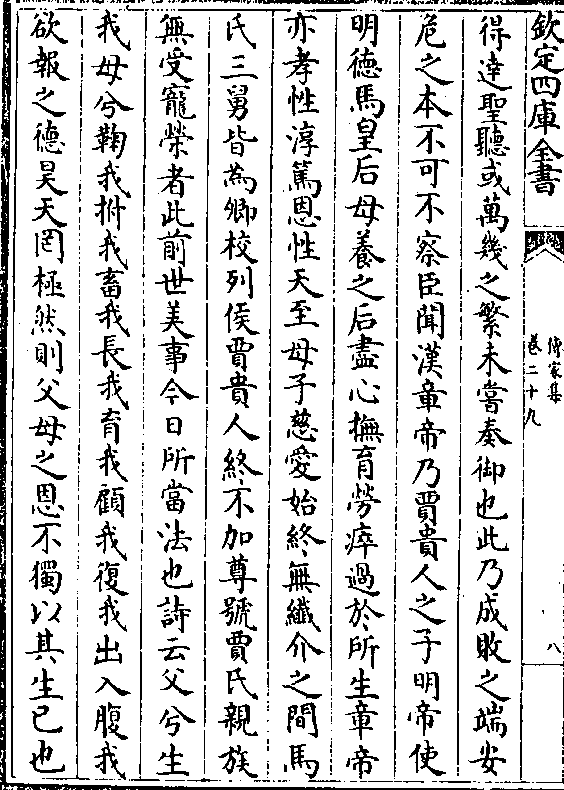 欽定四庫全書
傳家集
卷二十九
八
得達聖聽或萬幾之繁未嘗奏御也此乃成敗之端安
危之本不可不察臣聞漢章帝乃賈貴人之子明帝使
明德馬皇后母養之后盡心撫育勞瘁過於所生章帝
亦孝性淳篤恩性天至母子慈愛始終無纖介之間馬
氏三舅皆為卿校列侯賈貴人終不加尊號賈氏親族
無受寵榮者此前世美事今日所當法也詩云父兮生
我母兮鞠我拊我畜我長我育我顧我復我出入腹我
欲報之德昊天罔極然則父母之恩不獨以其生己也